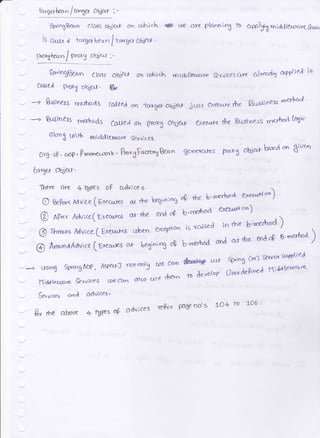 targetbean / target object :-
SpringBean class object on which we are planning to apply middleware services
is called targetbean / target object.
proxybean / proxy object :-
SpringBean class object on which middleware services are already applied is
called proxy object.
→ Business methods called on target object just execute the Business method.
→ Business methods called on proxy object execute the Business method logic
along with middleware services.
org.sf.aop.framework.ProxyFactoryBean generates proxy object based on given
target object.
There are 4 types of advices
① Before Advice (Executes at the beginning of the b.method execution)
② After Advice (Executes at the end of b.method execution)
③ Throws Advice (Executes when exception is raised in the b.method)
④ AroundAdvice (Executes at beginning of b.method and at the end of B.method)
→ using SpringAOP, AspectJ not only we can use Spring (or) Server supplied
Middleware services we can also use them to develop Userdefined Middleware
Services and advices.
for the above 4 types of advices refer page no's 104 to 106.